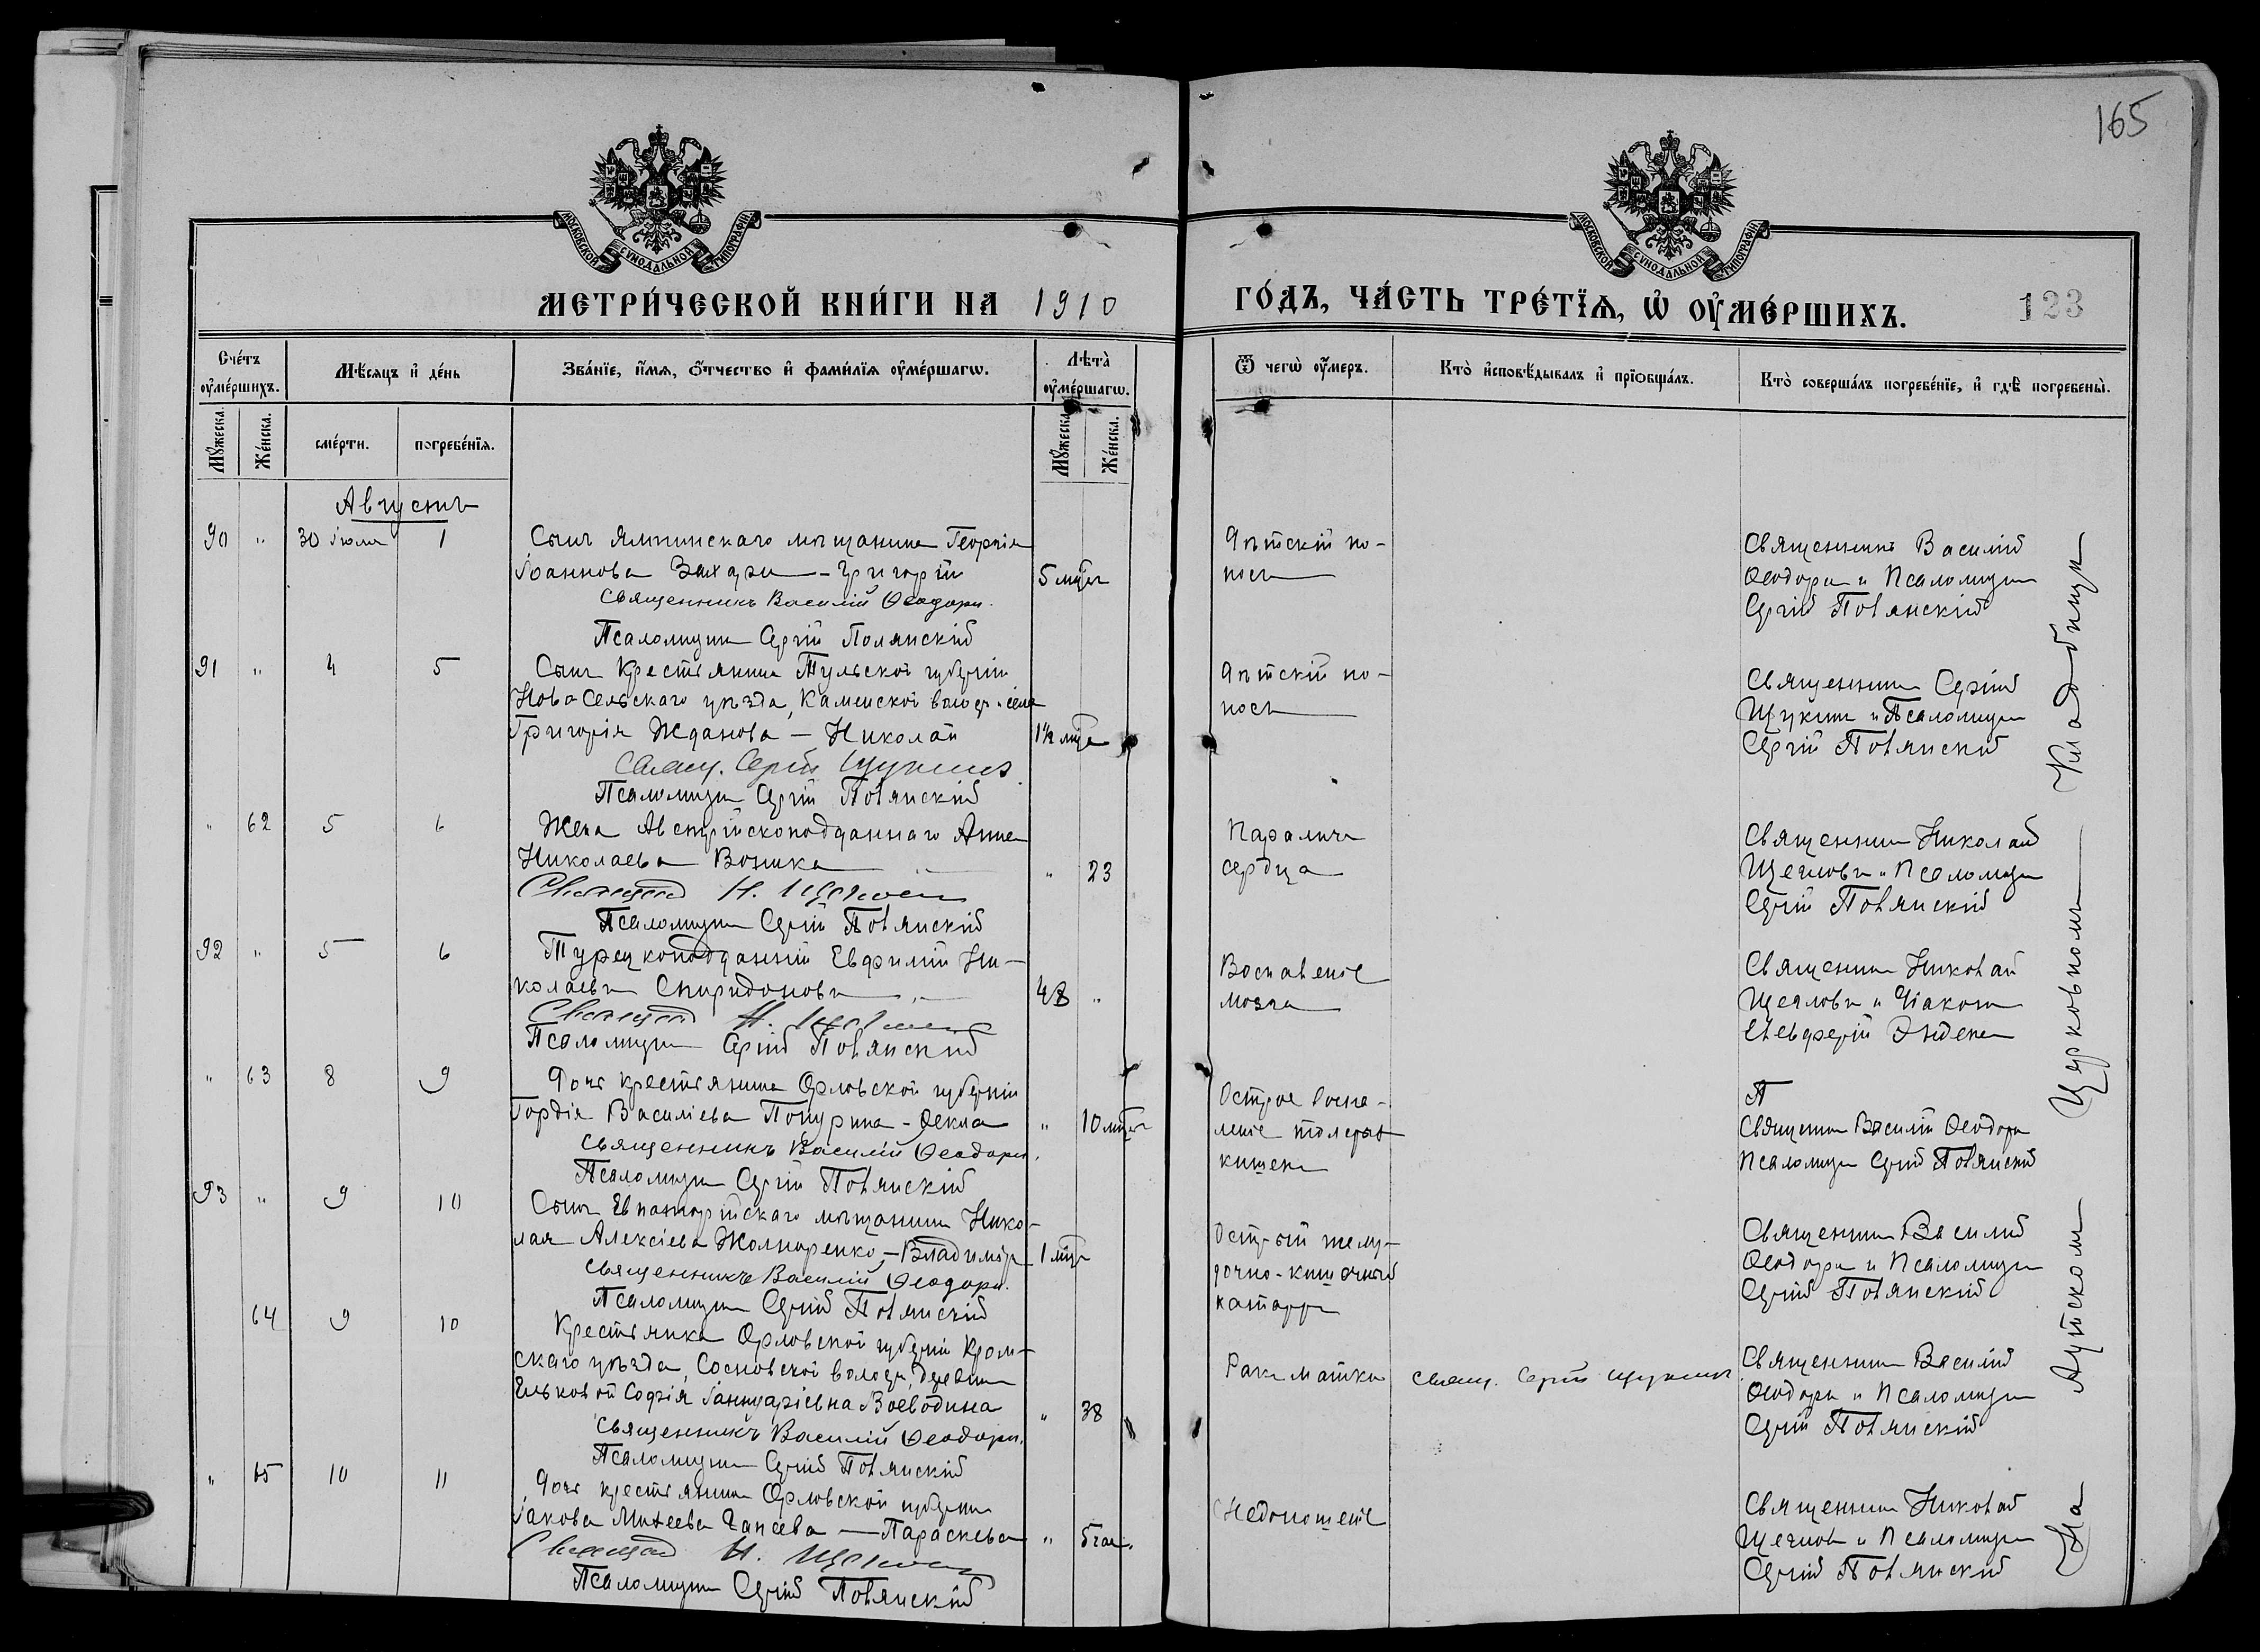 165
МОСКОВСКОЙ СѴНОДАЛЬНОЙ ТИПОГРАФІИ
МОСКОВСКОЙ СѴНОДАЛЬНОЙ ТИПОГРАФІИ
МЕТРИ́ЧЕСКОЙ КНИ́ГИ НА 1910 ГО́ДЪ, ЧА́СТЬ ТРЕ́ТЇѦ, Ѡ҆ ОУ҆МЕ́РШИХЪ. 123
Сче́тъ оу҆ме́ршихъ.
Мѣ́сяцъ и҆ де́нь
Зва́нїе, и҆́мѧ, ѻ҆́тчество и҆ фами́лїѧ оу҆ме́ршагѡ.
Лѣта̀ оу҆ме́ршагѡ.
Ѿ чегѡ̀ оу҆́меръ.
Кто̀ и҆сповѣ́дывалъ и҆ прїѻбща́лъ.
Кто̀ соверша́лъ погребе́нїе, и҆ гдѣ̀ погребены̀.
Мꙋ́жеска.
Же́нска.
сме́рти.
погребе́нїѧ.
Мꙋ́жеска.
Же́нска.
Августъ
90 " 30 Іюля 1
Сынъ Ялтинскаго мѣщанина Георгія
Іоаннова Захари - Григорій
5 мѣс
Священникъ Василій Ѳеодори.
Псаломщикъ Сергій Полянскій
Дѣтскій по-
носъ
Священникъ Василій
Ѳеодори и Псаломщикъ
Сергій Полянскій
91 " 4 5
Сынъ Крестьянина Тульской губерніи
НовоСельскаго уѣзда, Каменской волости и села
Григорія Жданова - Николай
1½ мѣс
Свящ. Сергій Щукинъ
Псаломщикъ Сергій Полянскій
Дѣтскій по-
носъ
Священникъ Сергій
Щукинъ и Псаломщикъ
Сергій Полянскій
" 62 5 6
Жена Австрійскоподданнаго Анна
Николаева Воника
" 23
Священникъ Н. Щегловъ
Псаломщикъ Сергій Полянскій
Параличъ
сердца
Священникъ Николай
Щегловъ и Псаломщикъ
Сергій Полянскій
92 " 5 6
Турецкоподданный Евфимій Ни-
колаевъ Спиридоновъ
48 "
Священникъ Н. Щегловъ
Псаломщикъ Сергій Полянскій
Воспаленіе
мозга
Священникъ Николай
Щегловъ и Діаконъ
Елевферій
" 63 8 9
Дочь крестьянина Орловской губерніи
Гордія Василіева - Ѳекла
" 10 мѣс
Священникъ Василій Ѳеодори.
Псаломщикъ Сергій Полянскій
Острое воспа-
леніе толстыхъ
кишекъ
П
Священникъ Василій Ѳеодори
Псаломщикъ Сергій Полянскій
93 " 9 10
Сынъ Евпаторійскаго мѣщанина Нико-
лая Алексіева Жолнаренко, - Владиміръ
1 мѣс
Священникъ Василій Ѳеодори.
Псаломщикъ Сергій Полянскій
Острый желу-
дочно-кишечный
катарръ
Священникъ Василій
Ѳеодори и Псаломщикъ
Сергій Полянскій
64 9 10
Крестьянка Орловской губерніи Кром-
скаго уѣзда, Сосновской волости, деревни
Ельковой Софія Іаннуаріевна Воеводина
" 38
Священникъ Василій Ѳеодори.
Псаломщикъ Сергій Полянскій
Ракъ матки
Свящ. Сергій Щукинъ
Священникъ Василій
Ѳеодори и Псаломщикъ
Сергій Полянскій
" 65 10 11
Дочь крестьянина Орловской губерніи
Іакова Михеева Гапеева - Параскева
" 5 час.
Священникъ Н. Щегловъ
Псаломщикъ Сергій Полянскій
Недоношеніе
Священникъ Николай
Щегловъ и Псаломщикъ
Сергій Полянскій
На Аутскомъ Церковномъ Кладбищѣ